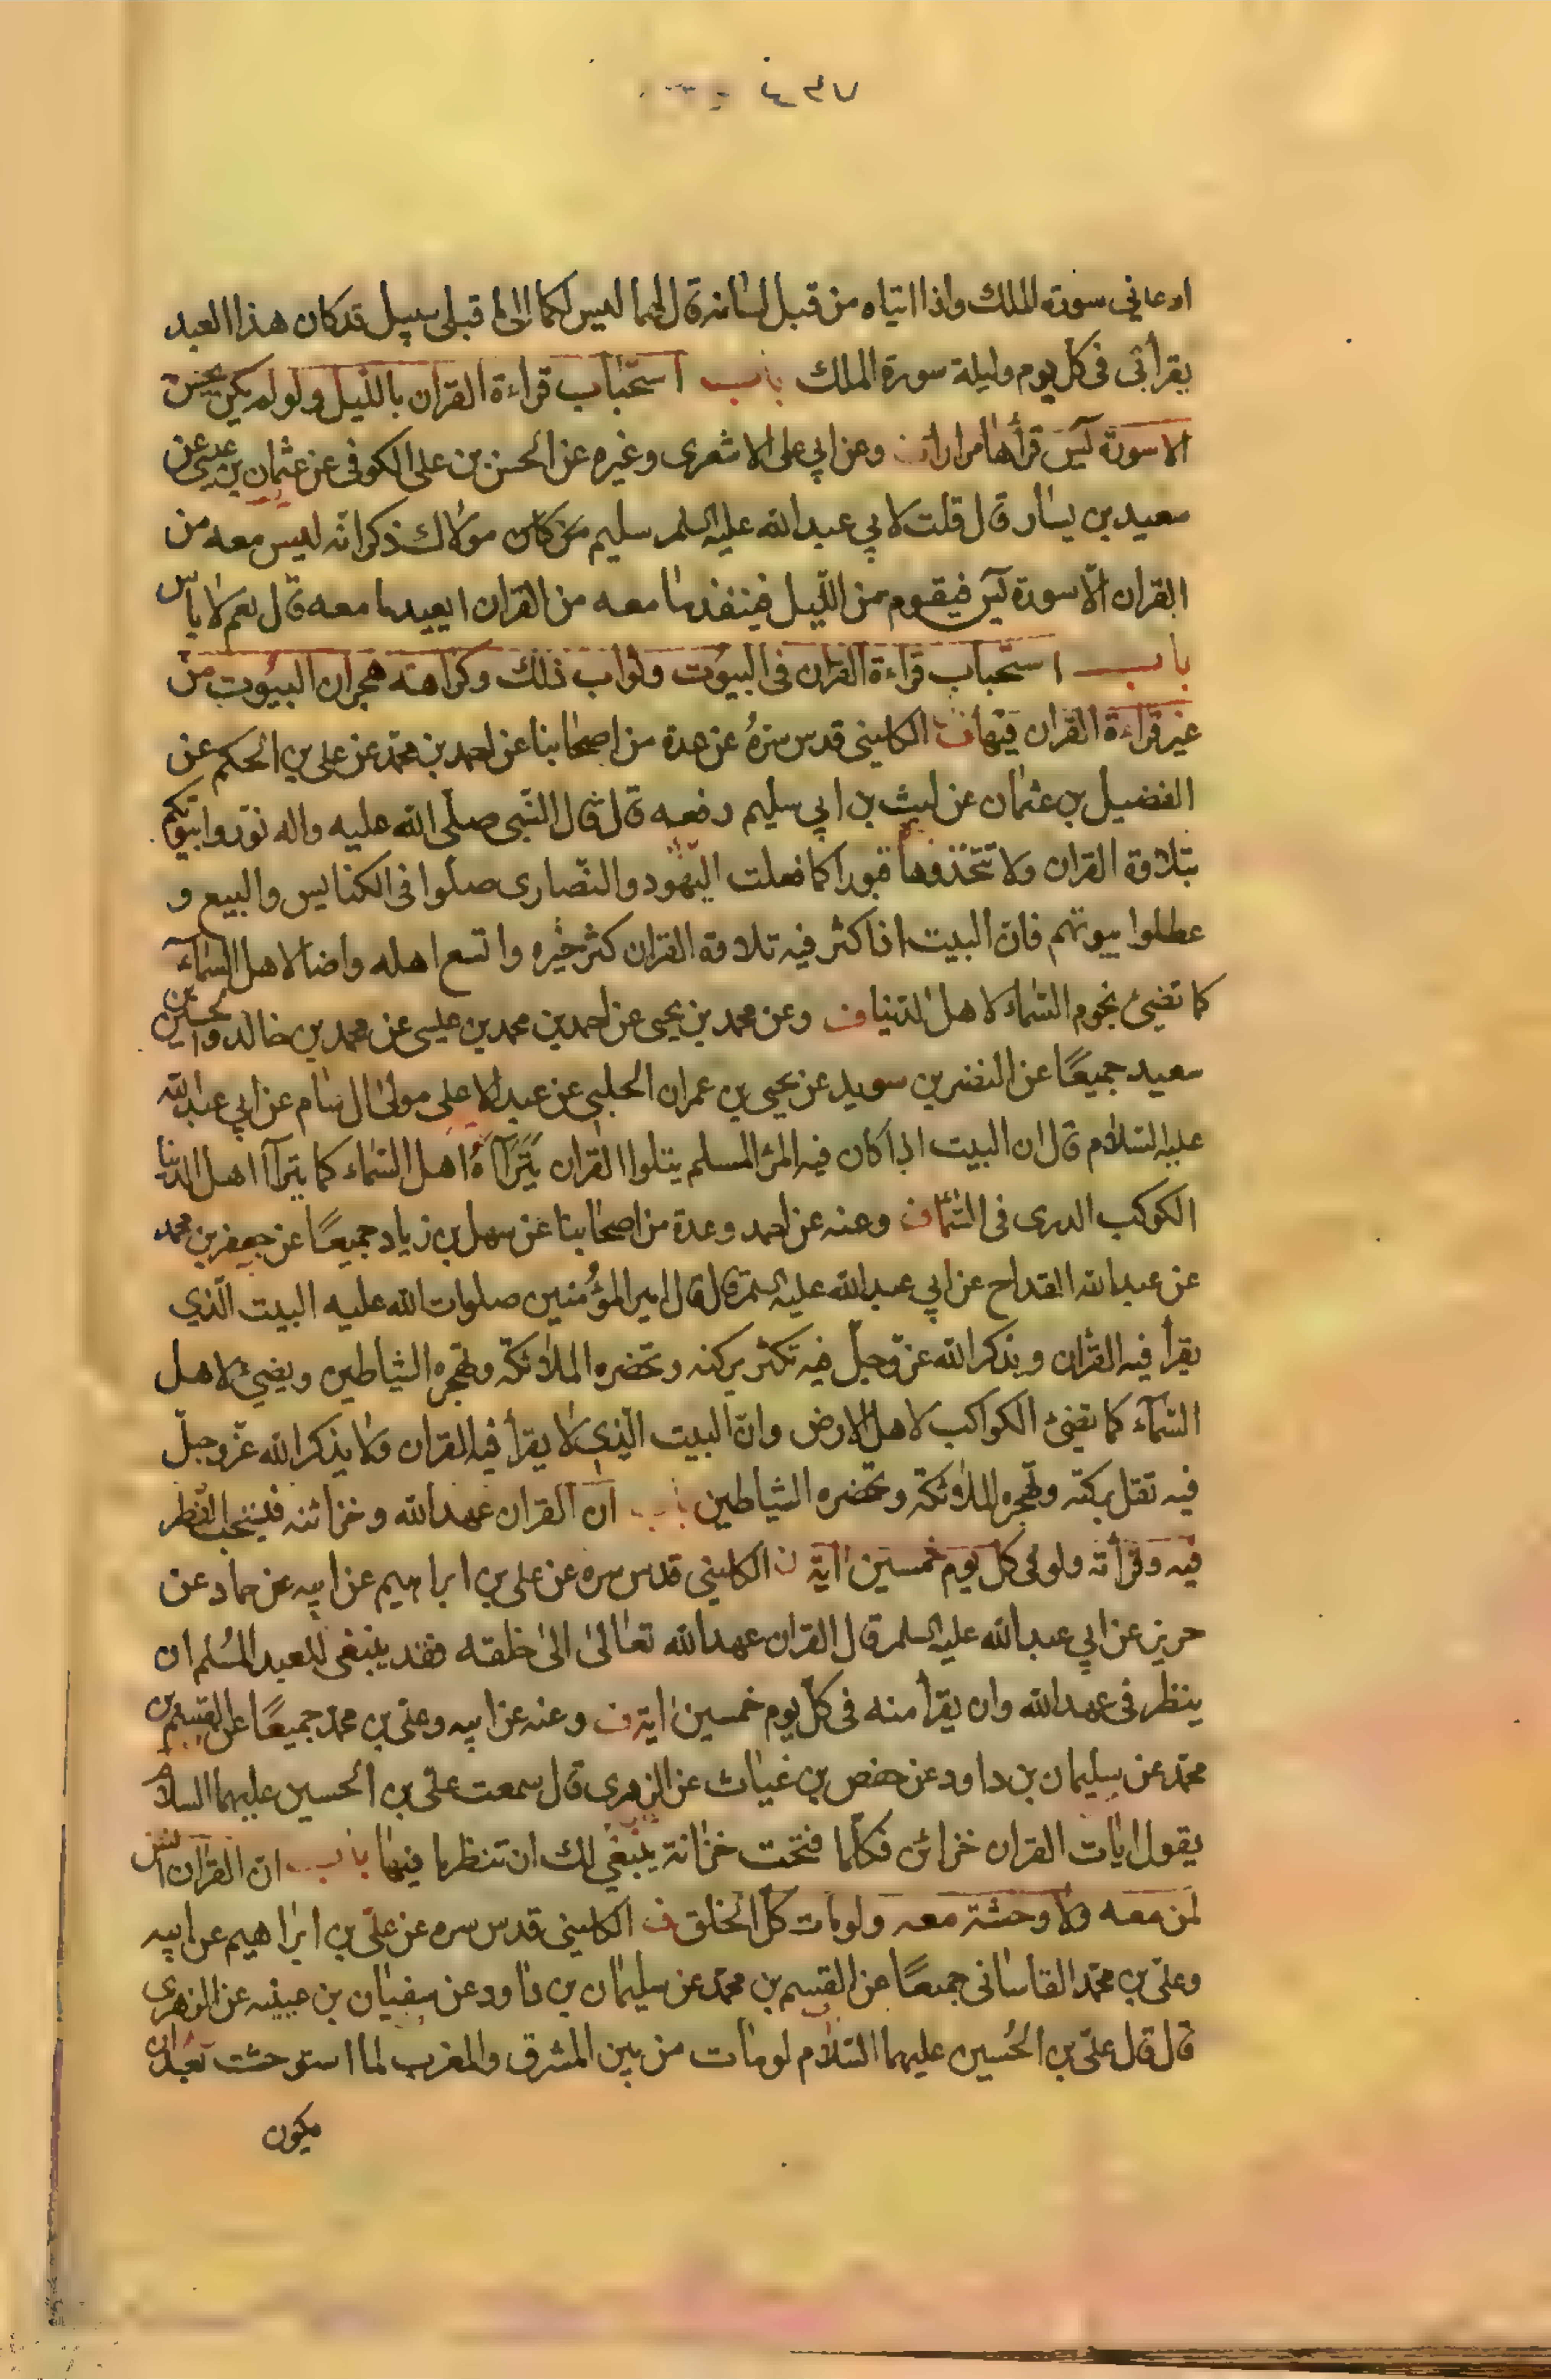 ٤٣٧
اوعاني سورة الملك واذا اتياه من قبل لسانه قال لهما ليس لكما الى ما قبلي سبيل قد كان هذا العبد
يقرأ بى فى كل يوم وليلة سورة الملك باب استحباب قراءة القران بالليل ولو لم يكن يحسن
الا سورة يس قرأها مرارا ف وعن ابي على الاشعرى وغيره عن الحسن بن على الكوفى عن عثمان بن عيسى عن
سعيد بن يسار قال قلت لابي عبدالله عليه السلم سليم مولاك ذكر انه ليس معه من
القران الّا سورة يس فيقوم من اللّيل فينفذ ما معه من القران ايعيد ما معه قال نعم لا باس
باب استحباب قراءة القران فى البيوت وثواب ذلك وكراهته هجران البيوت من
غير قراءة القران فيها ف الكلينى قدس سرّهُ عن عدة من اصحابنا عن احمد بن محمّد عن على بن الحكم عن
الفضيل بن عثمان عن ليث بن ابي سليم رفعه قال قال النّبى صلّى الله عليه واله نوّروا بيوتكم
بتلاوة القران ولا تتّخذوها قبورا كما فعلت اليهود والنصارى صلوا فى الكنايس والبيع و
عطلوا بيوتهم فانّ البيت اذا كثر فيه تلاوة القران كثر خيره واتسع اهله واضا لاهل السّماء
كما تضىئ نجوم السّماء لاهل الدّنيا ف وعن محمد بن يحيى عن احمد بن محمد بن عيسى عن محمد بن خالد والحسين بن
سعيد جميعًا عن النضر بن سويد عن يحيى بن عمران الحلبى عن عبد الاعلى مولى ال سام عن ابي عبدالله
عليه السّلام قال ان البيت اذا كان فيه المرء المسلم يتلوا القران يَتَرَآءَاهُ اهل السّماء كما يترآا اهل الدنيا
الكوكب الدرى فى السّما ف وعنه عن احمد وعدة من اصحابنا عن سهل بن زياد جميعًا عن جعفر بن محمد
عن عبدالله القداح عن ابي عبدالله عليه السلم قال قال امير المؤُمنين صلوات الله عليه البيت الّذي
يقرأ فيه القرأن ويذكر الله عزّوجلّ فيه تكثر بركته وتحضره الملائكة وتهجره الشياطين ويضيئ لاهل
السّماء كما تضىئ الكواكب لاهل الارض وانّ البيت الّذي لا يقرأ فيه القران ولا يذكر الله عزّوجلّ
فيه تقل بركته وتهجره الملائكة وتحضره الشياطين باب ان القران عهد الله وخزائنه فيستحب النظر
فيه وقرأته ولو فى كل يوم خمسين اية ف الكلينى قدس سره عن على بن ابراهيم عن ابيه عن حماد عن
حريز عن ابي عبدالله عليه السلم قال القران عهدالله تعالى الى خلقه فقد ينبغى للعبد المُسلم ان
ينظر فى عهدالله وان يقرأ منه فى كلّ يوم خمسين اية ف وعنه عن ابيه وعلى بن محمّد جميعًا عن القسم بن
محمّد عن سليمان بن داود عن حفص بن غياث عن الزهرى قال سمعت علىّ بن الحسين عليهما السلام
يقول ايات القران خزائن فكلما فتحت خزانة ينبغي لك ان تنظر ما فيها باب ان القران انس
لمن معه ولا وحشة معه ولو مات كلّ الخلق ف الكلينى قدس سره عن علىّ بن ابراهيم عن ابيه
وعلىّ بن محمّد القاسانى جميعًا عن القسم بن محمّد عن سليمان بن داود عن سفيان بن عيينه عن الزهرى
قال قال علىّ بن الحُسين عليهما السّلام لو مات من بين المشرق والمغرب لما استوحشت بعد ان
يكون